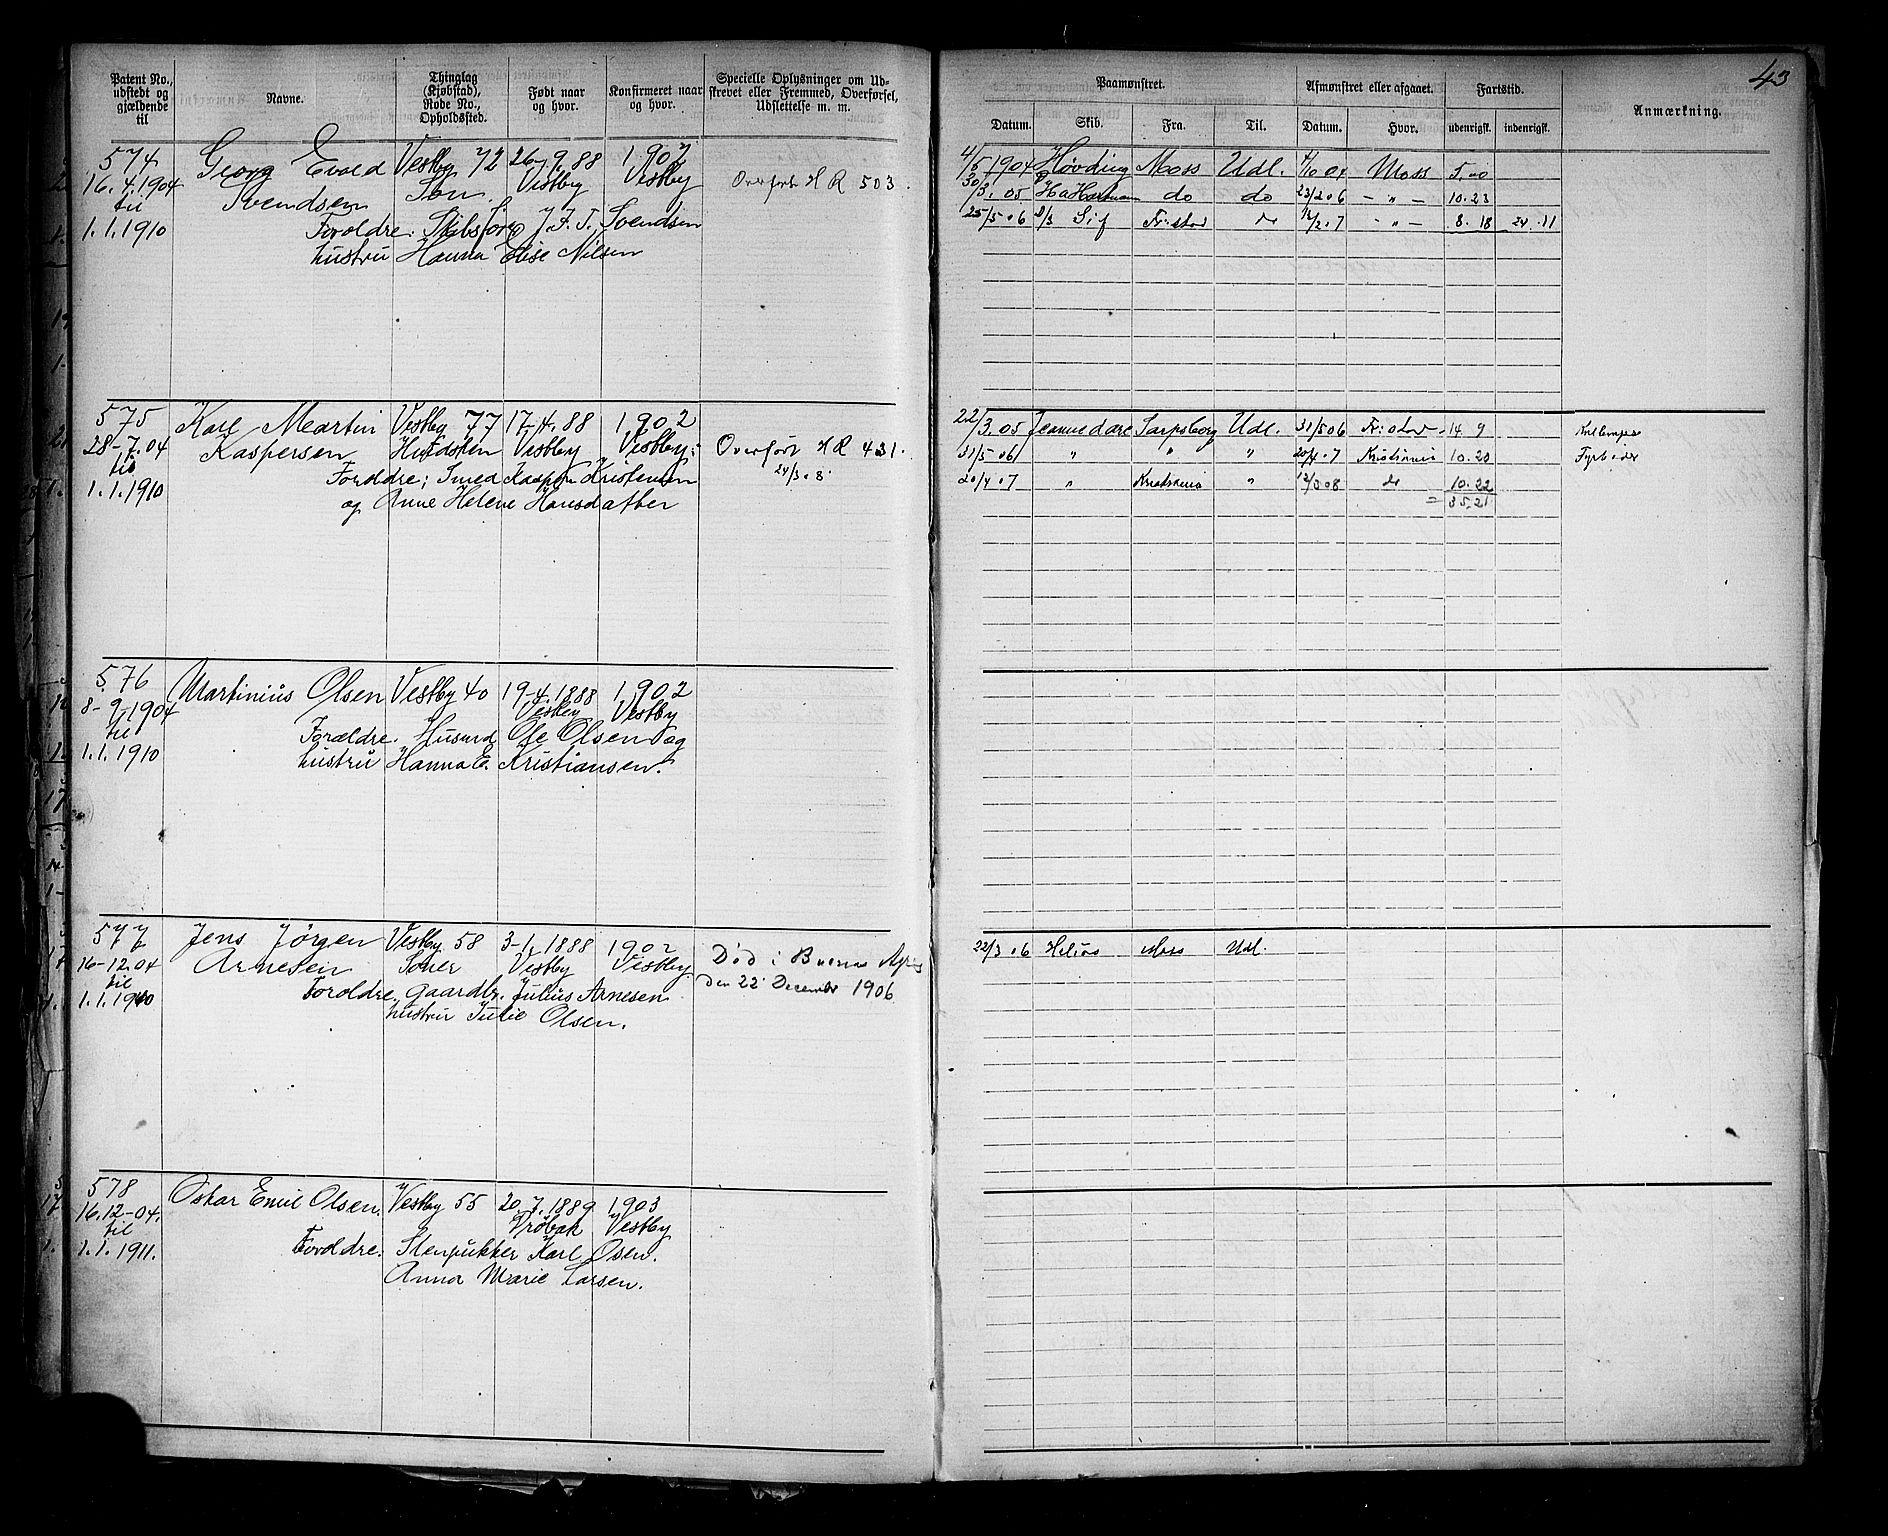 43
Patent No., udstedt og gjældende til
Navne.
Thinglag (Kjøbstad), Rode No., Opholdssted.
Født naar og hvor.
Konfirmeret naar og hvor.
Specielle Oplysninger om Udskrevet eller Fremmed, Overførsel, Udslettelse m. m.
Paamønstret.
Afmønstret eller afgaaet.
Fartstid.
Anmærkning.
Datum. Skib. Fra. Til. Datum. Hvor. udenrigsk. indenrigsk.
574 Georg Evald Vestby 72 26/9.88 1902
16.4.1904 Svendsen Son Vestby Vestby Overført H R 503.
til Foroldre: Skibsfører J. F. T. Svendsen
1.1.1910 hustru Hanna Elise Nilsen
4/5 1904 Høvding Moss Udl. 4/10 04 Moss 5.00
30/3.05 Ha Hartmann do do 23/2 06 — „ — 10.23
25/5.06 Sif Fr:stad 12/2.07 — „ — 8.18 24.11
575 Karl Martin Vestby 77 17/4.88 1902
28-7.04 Kaspersen Vestby Vestby: Overført H R 431.
til Foroldre: Smed Kasper Kristensen 24/3.8
1.1.1910 og Anne Helene Hansdatter
22/3.05 Jeannedare Sarpsborg Udl. 31/5 06 Fr:stad 14 9
31/5.06 „ „ „ 20/4.07 Kristiania 10.20 Fyrbøder
20/4.07 „ Kristiania „ 12/3 08 do 10.22
= 35.21
576 Martinius Olsen Vestby 40 19-4.1888 1902
8-9-1904 Vestby Vestby
til Forældre. Husmd Ole Olsen og
1.1.1910 hustru Hanna E. Kristiansen.
577 Jens Jörgen Vestby 58 3-1.1888 1902
16-12.04 Arnesen Soner Vestby Vestby. Død i Buenos Ayres
til Foroldre. gaardbr. Julius Arnesen den 22 December 1906
1.1.1910 hustru Julie Olsen.
22/3 06 Helios Moss Udl.
578 Oskar Emil Olsen. Vestby 55 20.7.1889 1903
16.12-04. Drøbak Vestby
til
1.1.1911. Foroldre: Stenpukker Karl Osen.
Anna Marie Larsen.